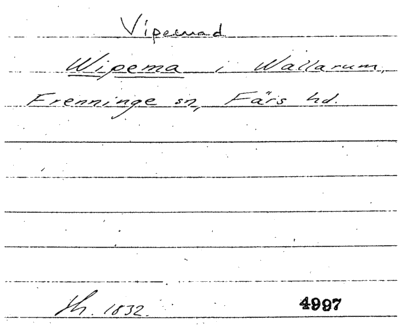 Vipemad
Wipema i Wallarum,
Frenninge sn, Färs hd.
Sk. 1832. 4997